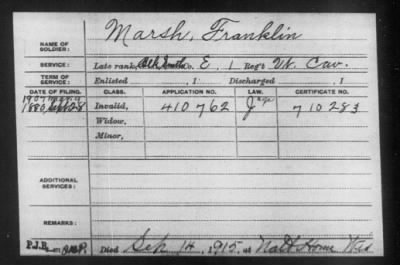 NAME OF SOLDIER: Marsh, Franklin
SERVICE: Late rank, Blk Smith Co. E, 1 Reg't Vt. Cav.
TERM OF SERVICE: Enlisted , 1 Discharged , 1
DATE OF FILING. CLASS. APPLICATION NO. LAW. CERTIFICATE NO.
1907
1880 Sept 28 Invalid, 410762 710283
Widow,
Minor,
ADDITIONAL SERVICES:
REMARKS:
P.J.B. Died Sep 14, 1915, at Nat'l Home Wis